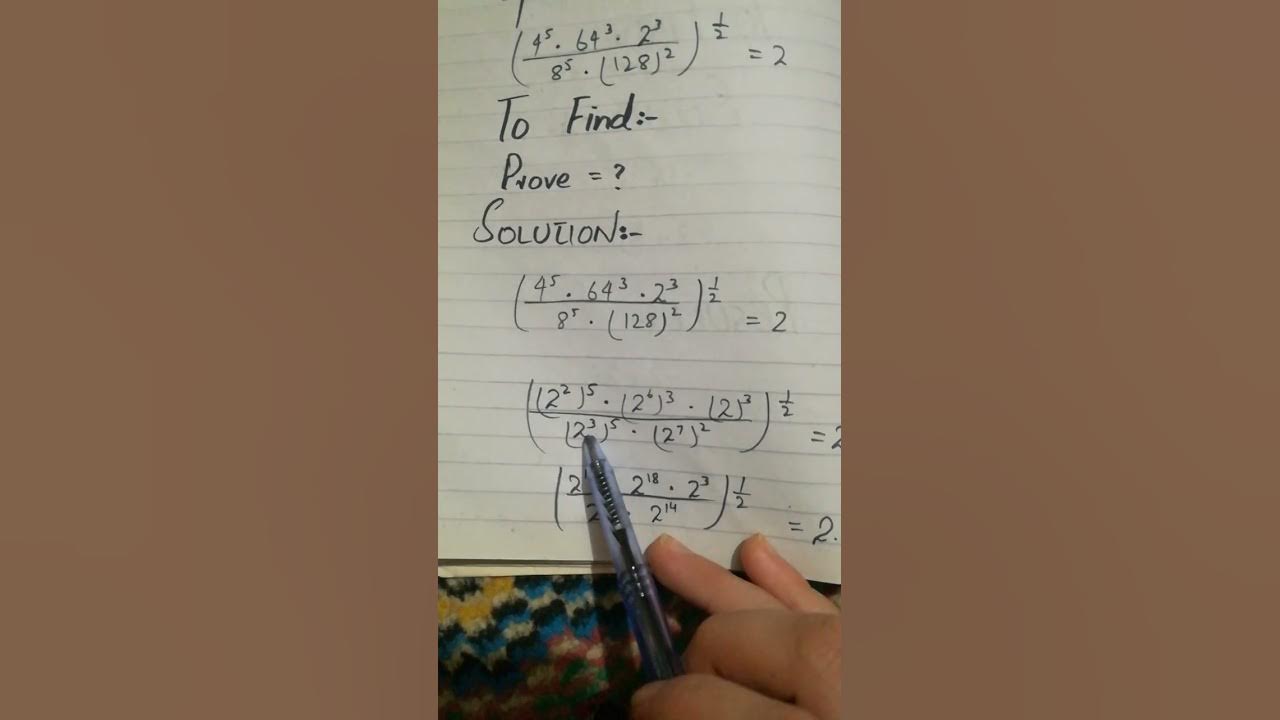 (4⁵ · 64³ · 2³ / 8⁵ · (128)²)^1/2 = 2
To Find:-
Prove = ?
SOLUTION:-
(4⁵ · 64³ · 2³ / 8⁵ · (128)²)^1/2 = 2
((2²)⁵ · (2⁶)³ · (2)³ / (2³)⁵ · (2⁷)²)^1/2 = 2
(2 2¹⁸ · 2³ / 2 · 2¹⁴)^1/2 = 2.